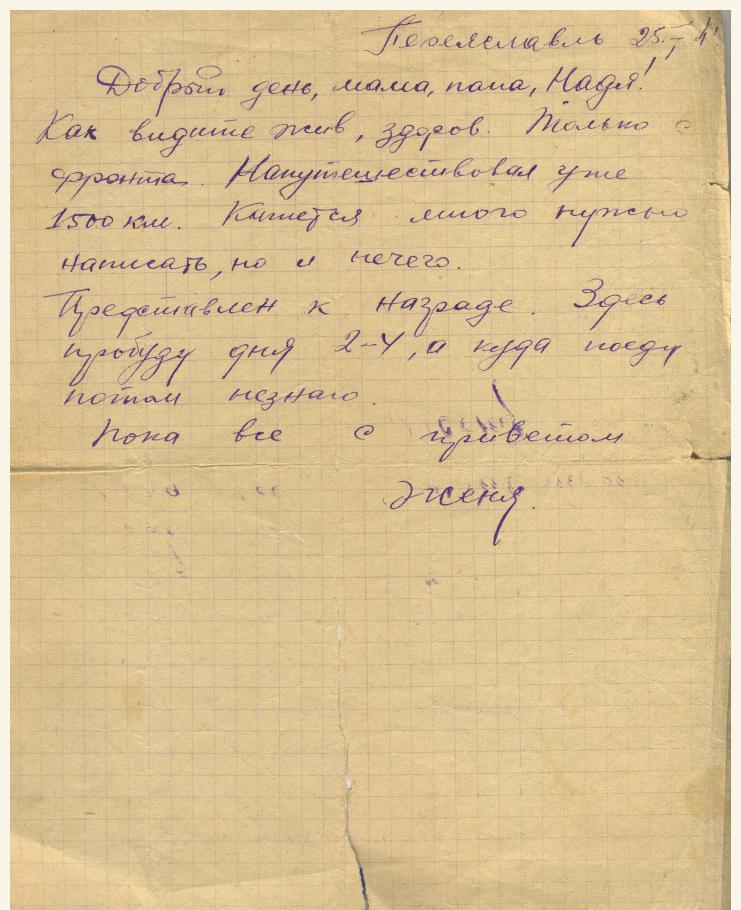 Переяславль 25.
Добрый день, мама, папа, Надя!
Как видите жив, здоров. Только с
фронта. Напутешествовал уже
1500 км. Кажется много нужно
написать, но и нечего.
Представлен к награде. Здесь
пробуду дня 2-4, а куда поеду
потом незнаю.
Пока все с приветом
Женя.